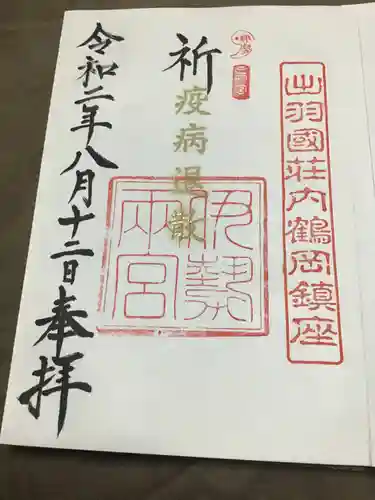 出羽國荘内鶴岡鎮座
祈
疫病退散
伊勢両宮
令和二年八月十二日奉拝